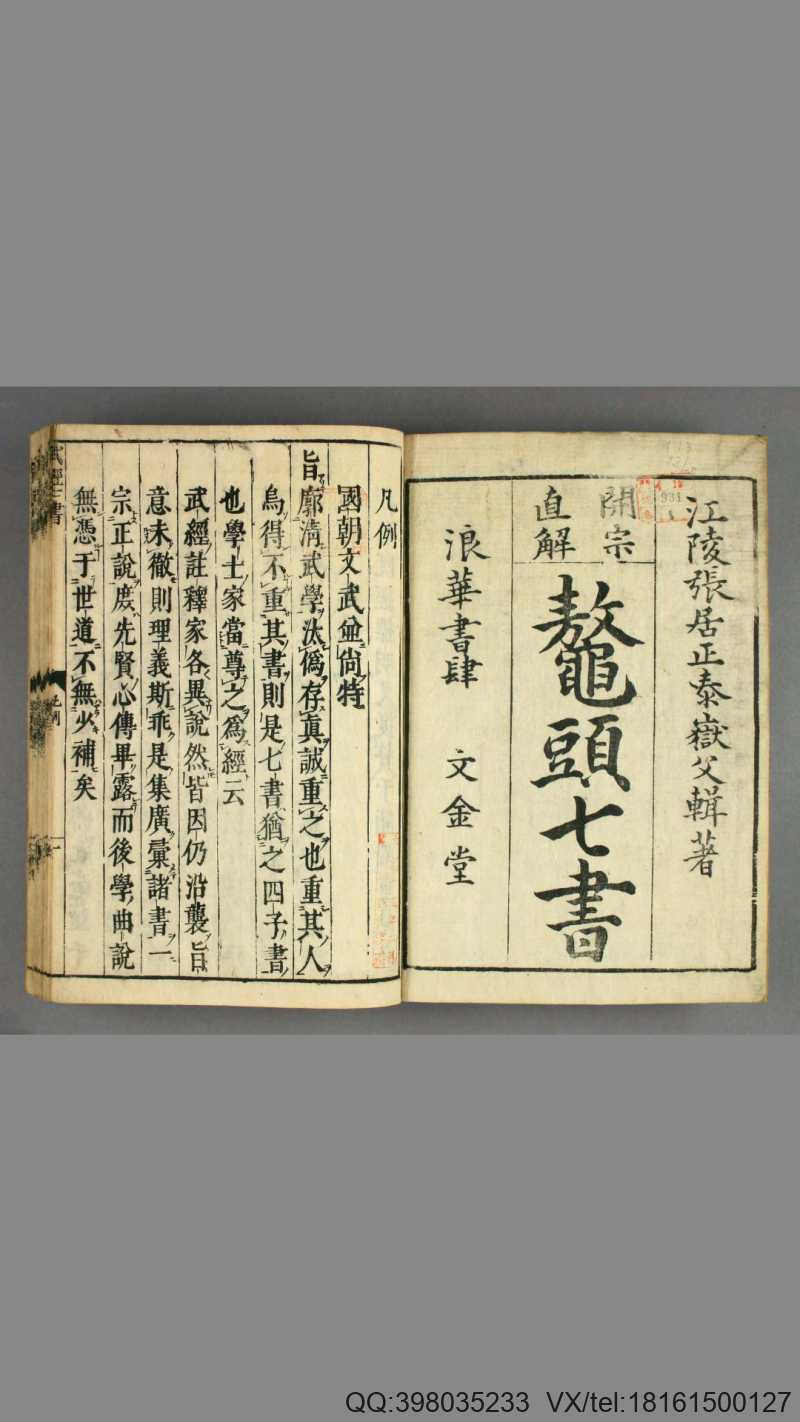 江陵張居正泰嶽父輯著
開宗
直解
鼇頭七書
浪華書肆 文金堂
凡例
國朝文武並尚特
旨廓清武學汰僞存真誠重之也重其人
烏得不重其書則是七書猶之四子書
也學士家當尊之爲經云
武經註釋家各異說然皆因仍沿襲旨
意未徹則理義斯乖是集廣彙諸書一
宗正說庶先賢心傳畢露而後學曲說
無憑于世道不無少補矣
武經七書
凡例
一
QQ:398035233 VX/tel:18161500127